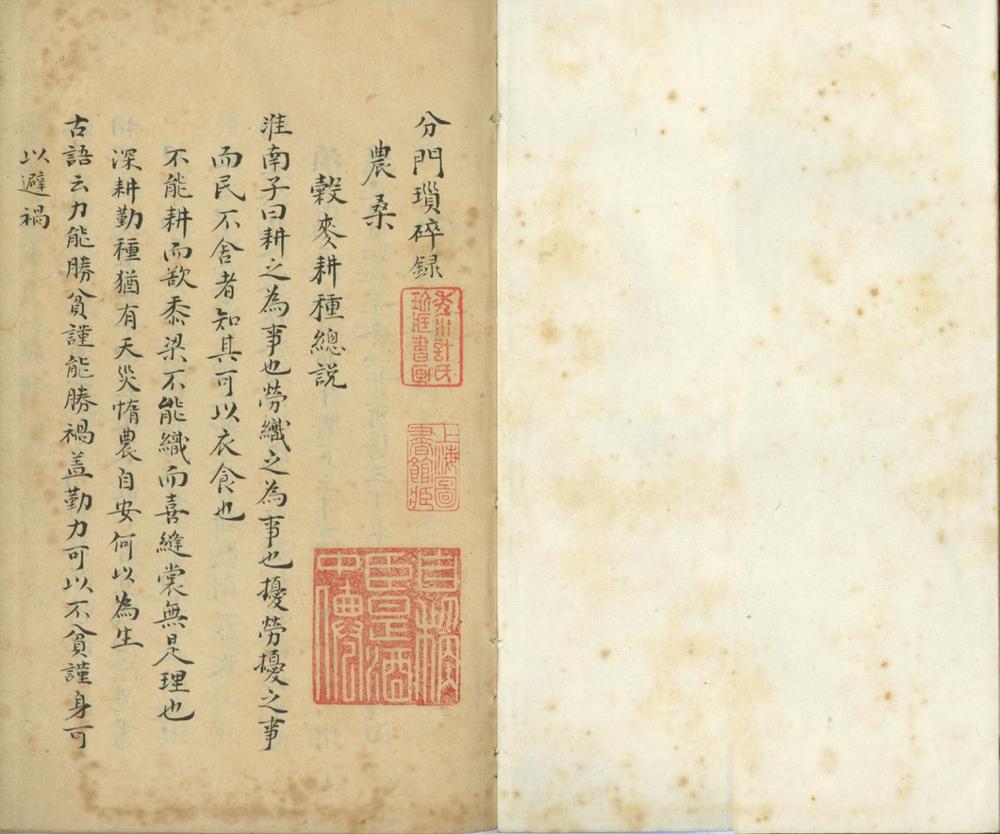 分門瑣碎録
農桑
穀麥耕種總説
淮南子曰耕之為事也勞織之為事也擾勞擾之事
而民不舍者知其可以衣食也
不能耕而欲黍梁不能織而喜縫裳無是理也
深耕勤種猶有天災惰農自安何以為生
古語云力能勝貧謹能勝禍盖勤力可以不貧謹身可
以避禍
秀水計氏
珍藏書畫
上海圖
書館臧